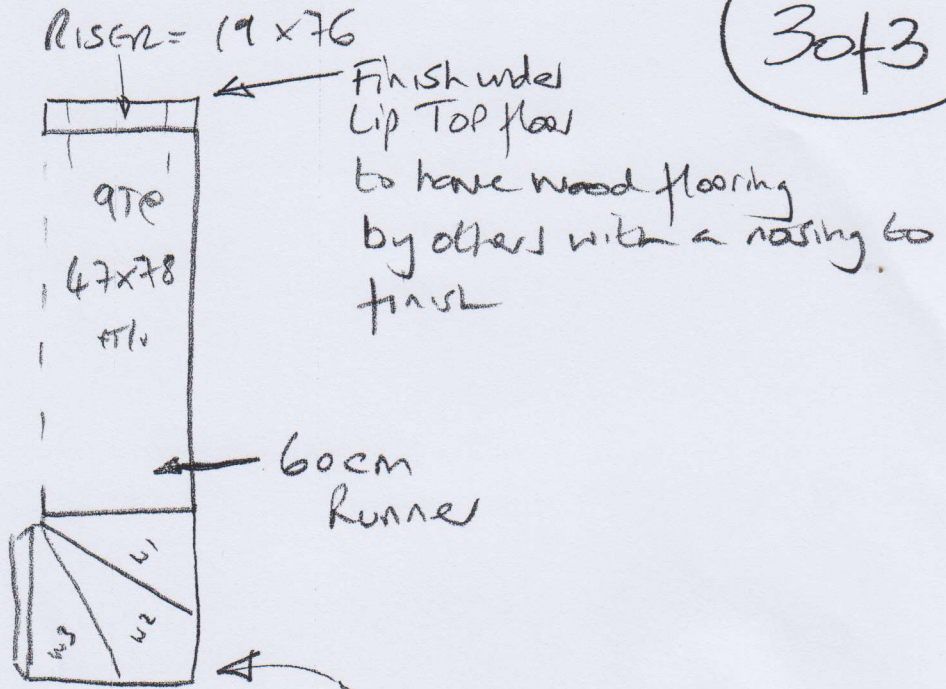 RISER = 19 x 76
3 of 3
Finish under
Lip Top floor
to have wood flooring
by others with a nosing to
finish
9T@
47x78
60cm
Runner
W1
W2
W3